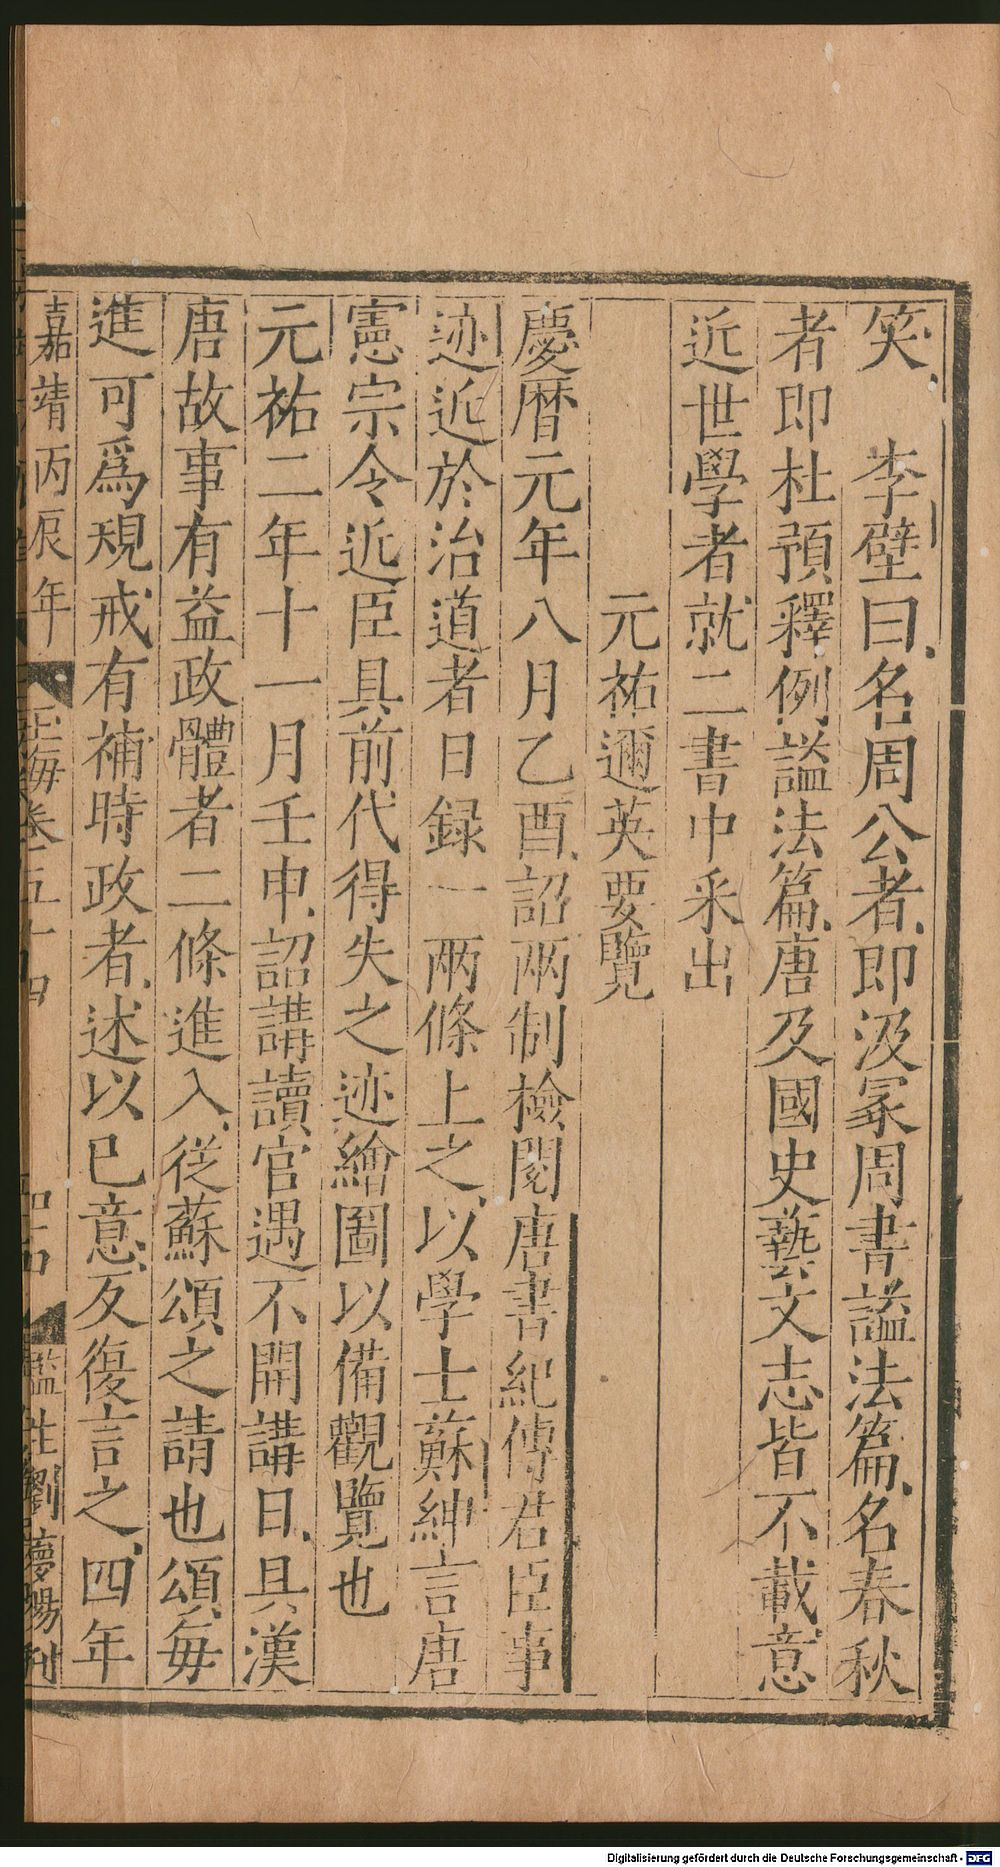 笑　李壁曰名周公者即汲冡周書謚法篇名春秋
者即杜預釋例謚法篇唐及國史藝文志皆不載意
近世學者就二書中采出
元祐邇英要覽
慶曆元年八月乙酉詔兩制檢閱唐書紀傳君臣事
迹近於治道者日録一兩條上之以學士蘇紳言唐
憲宗令近臣具前代得失之迹繪圖以備觀覽也
元祐二年十一月壬申詔講讀官遇不開講日具漢
唐故事有益政體者二條進入從蘇頌之請也頌每
進可爲規戒有補時政者述以已意反復言之四年
嘉靖丙辰年　玉海卷五十四　監生劉慶暘刊
Digitalisierung gefördert durch die Deutsche Forschungsgemeinschaft - DFG